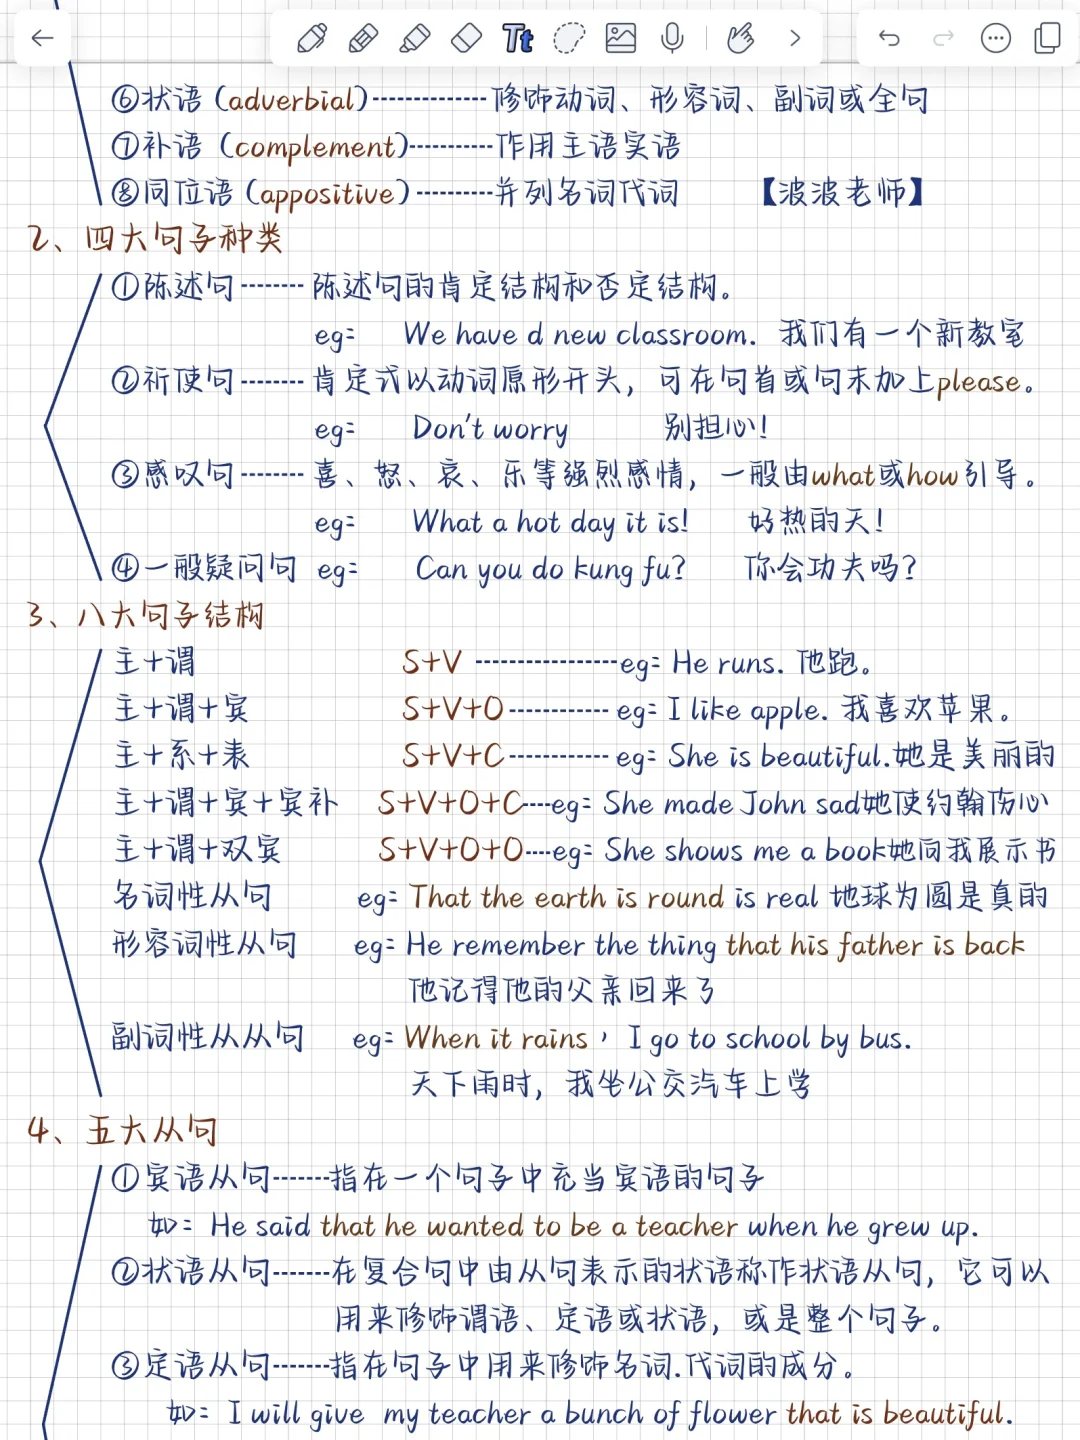 Tt
⑥状语（adverbial）------------- 修饰动词、形容词、副词或全句
⑦补语（complement）----------作用主语宾语
⑧同位语（appositive）---------并列名词代词 【波波老师】
2、四大句子种类
①陈述句-------- 陈述句的肯定结构和否定结构。
eg: We have d new classroom. 我们有一个新教室
②祈使句-------- 肯定式以动词原形开头，可在句首或句末加上please。
eg: Don't worry 别担心！
③感叹句-------- 喜、怒、哀、乐等强烈感情，一般由what或how引导。
eg: What a hot day it is! 好热的天！
④一般疑问句 eg: Can you do kung fu? 你会功夫吗？
3、八大句子结构
主+谓 S+V -----------------eg: He runs. 他跑。
主+谓+宾 S+V+O------------ eg: I like apple. 我喜欢苹果。
主+系+表 S+V+C------------ eg: She is beautiful.她是美丽的
主+谓+宾+宾补 S+V+O+C----eg: She made John sad她使约翰伤心
主+谓+双宾 S+V+O+O----eg: She shows me a book她向我展示书
名词性从句 eg: That the earth is round is real 地球为圆是真的
形容词性从句 eg: He remember the thing that his father is back
他记得他的父亲回来了
副词性从从句 eg: When it rains，I go to school by bus.
天下雨时，我坐公交汽车上学
4、五大从句
①宾语从句-------指在一个句子中充当宾语的句子
如：He said that he wanted to be a teacher when he grew up.
②状语从句-------在复合句中由从句表示的状语称作状语从句，它可以
用来修饰谓语、定语或状语，或是整个句子。
③定语从句-------指在句子中用来修饰名词.代词的成分。
如：I will give my teacher a bunch of flower that is beautiful.